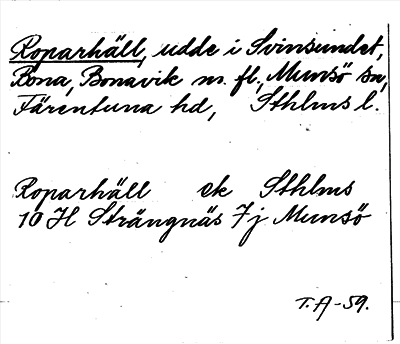 Roparhäll, udde i Svinsundet,
Bona, Bonavik m. fl., Munsö sn,
Färentuna hd, Sthlms l.
Roparhäll ek Sthlms
10 Il Strängnäs 7j Munsö
T.A-59.